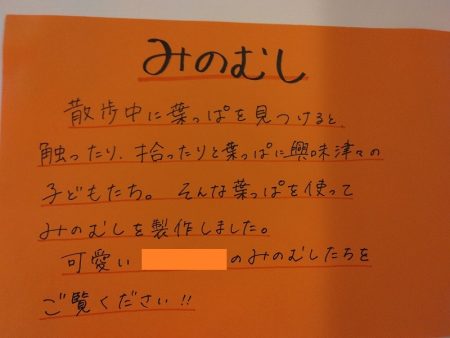 みのむし
散歩中に葉っぱを見つけると、
触ったり、拾ったりと葉っぱに興味津々の
子どもたち。そんな葉っぱを使って
みのむしを製作しました。
可愛い のみのむしたちを
ご覧ください!!